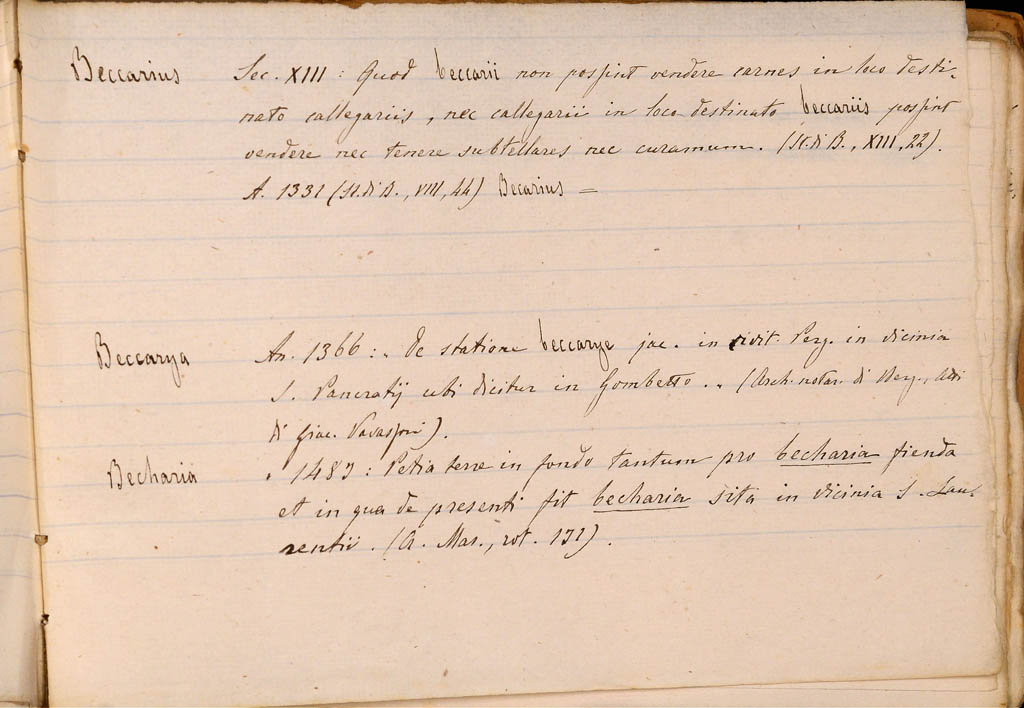 Beccarius Sec. XIII : Quod beccarii non possint vendere carnes in loco desti-
nato callegariis, nec callegarii in loco destinato beccariis possint
vendere nec tenere subtellares nec curamum. (St. di B., XIII, 22).
A. 1331 (St. di B., VIII, 44) Becarius =
Beccarya An. 1366 : „ De statione beccarye jac. in civit. Perg. in vicinia
S. Pancratij ubi dicitur in Gombetto. „ (Arch. notar. di Berg., Atti
di Giac.
Becharia „ 1487 : Petia terre in fondo tantum pro becharia fienda
et in qua de presenti fit becharia sita in vicinia S. Lau-
rentii. (A. Mas., rot. 171).